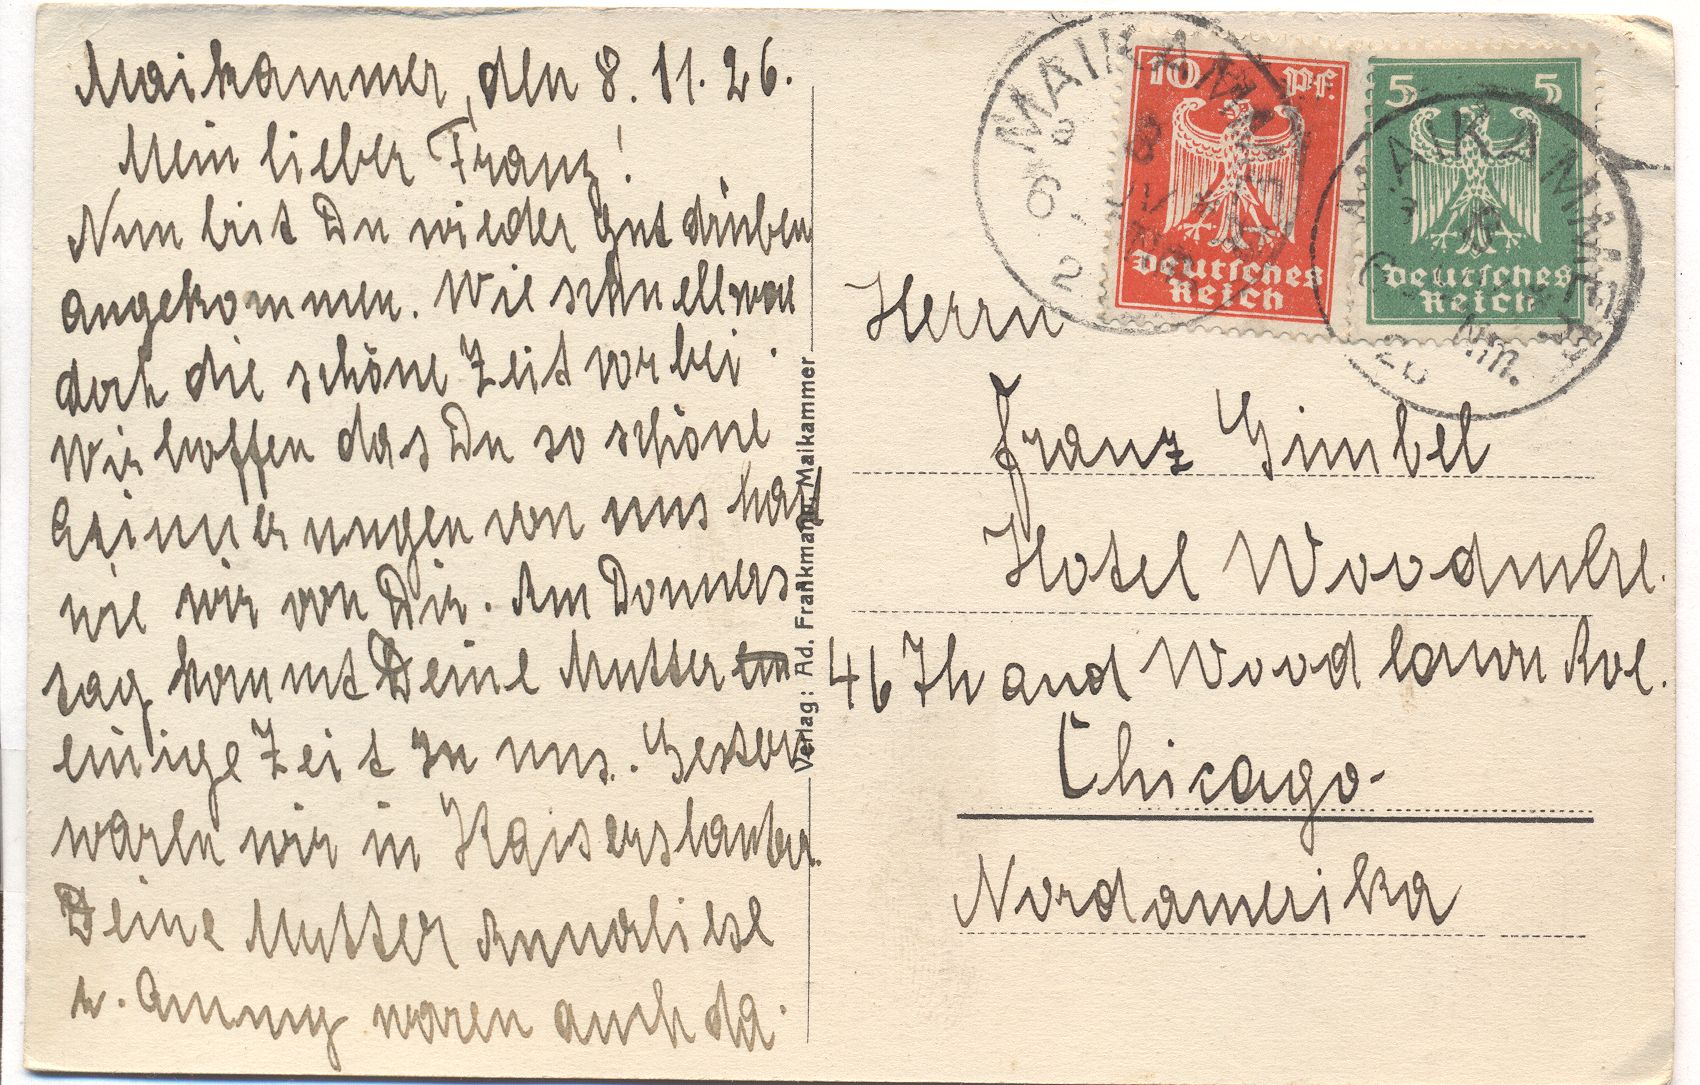 Maikammer, den 8.11.26.
Mein lieber Franz!
Nun bist Du wieder gut drüben
angekommen. Wie schnell war
doch die schöne Zeit vorbei.
Wir hoffen das Du so schöne
Erinnerungen von uns hast
wie wir von Dir. Am Donners
tag kommt Deine Mutter
einige Zeit zu uns. Gestern
waren wir in Kaiserslauter.
Deine Mutter Annaliese
u. Ammy waren auch da.
Verlag: Ad. Frankmann, Maikammer
MAIKAMMER
8
26
10 Pf.
Deutsches
Reich
5 5
Deutsches
Reich
MAIKAMMER
Nm.
26
Herrn
Franz Gimbel
Hotel Woodmere.
46 Th and Woodlawn Ave.
Chicago-
Nordamerika